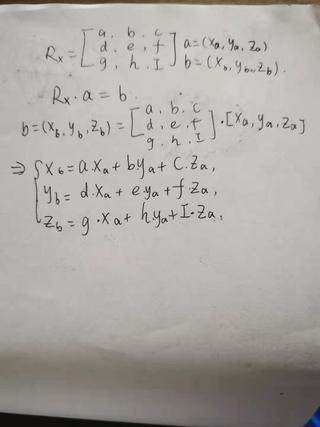 Rx = [ a, b, c   a = (xa, ya, za)
d, e, f
g, h, I ]   b = (xb, yb, zb).
Rx · a = b
b = (xb, yb, zb) = [ a, b, c
d, e, f
g, h, I ] · [xa, ya, za]
⇒ { xb = a.xa + b.ya + c.za,
yb = d.xa + e.ya + f.za,
zb = g·xa + h.ya + I·za,